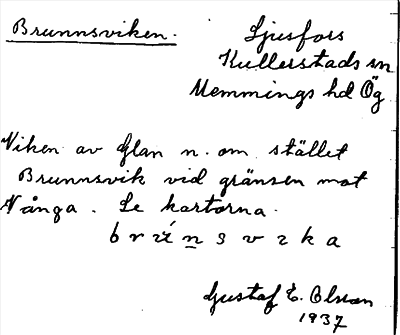 Brunnsviken.
Ljusfors
Kullerstads sn
Memmings hd Ög
Viken av Glan n. om stället
Brunnsvik vid gränsen mot
Vånga. Se kartorna.
Gustaf E. Olsson
1937